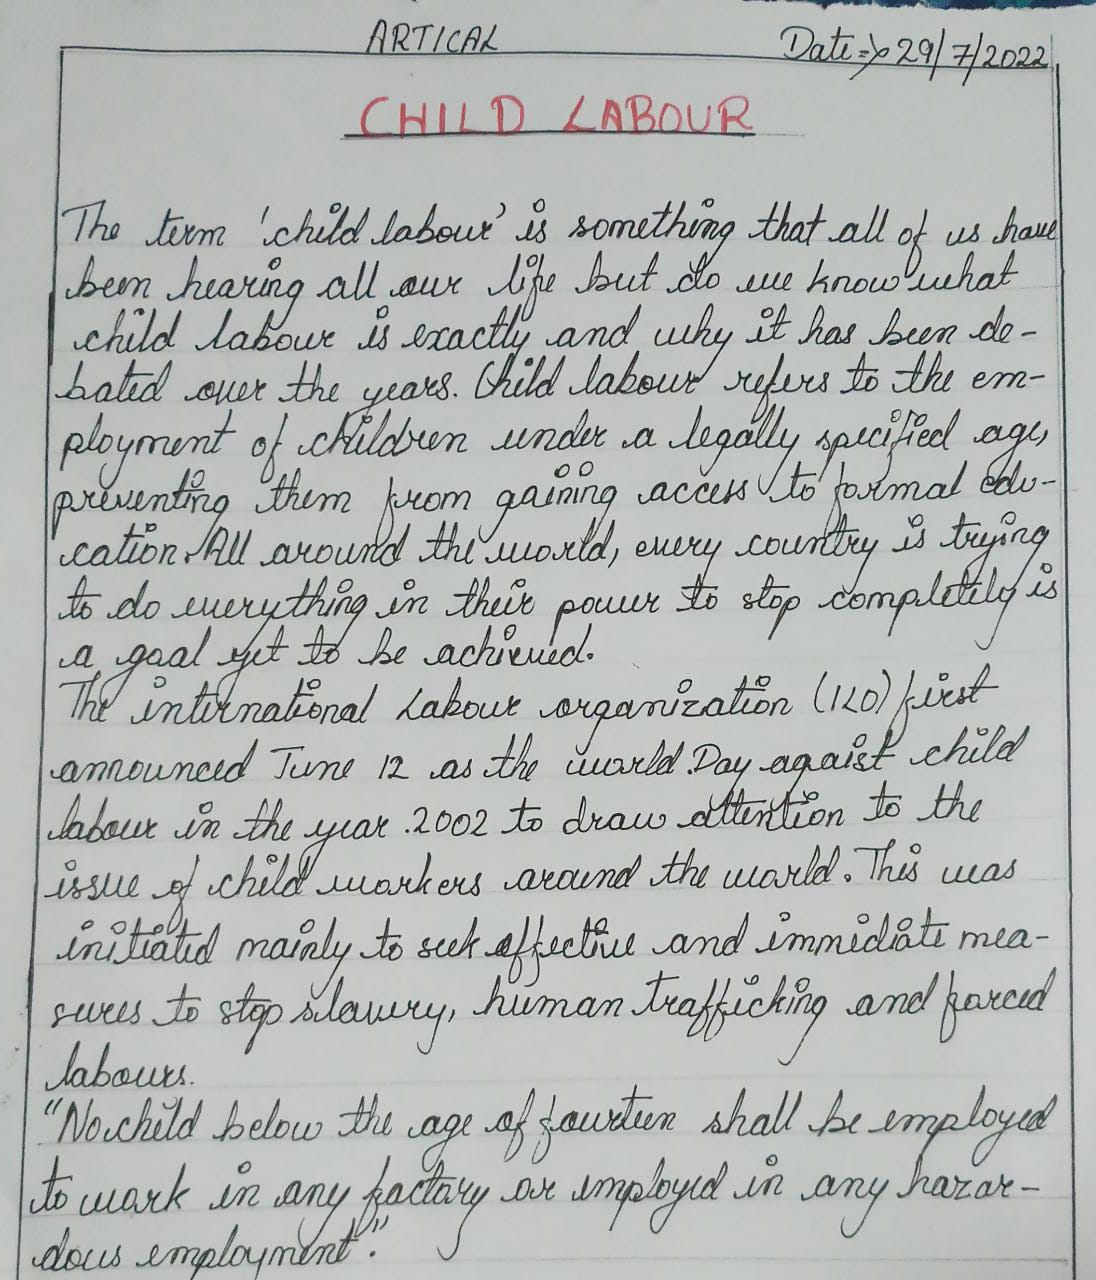 ARTICAL
Date => 29/7/2022
CHILD LABOUR
The term 'child labour' is something that all of us have
been hearing all our life but do we know what
child labour is exactly and why it has been de-
bated over the years. Child labour refers to the em-
ployment of children under a legally specified age,
preventing them from gaining access to formal edu-
cation. All around the world, every country is trying
to do everything in their power to stop completely is
a goal yet to be achieved.
The international Labour organization (ILO) first
announced June 12 as the world Day agaist child
labour in the year 2002 to draw attention to the
issue of child workers around the world. This was
initiated mainly to seek effective and immediate mea-
sures to stop slavery, human trafficking and forced
labours.
"No child below the age of fourteen shall be employed
to work in any factory or employed in any hazar-
dous employment".